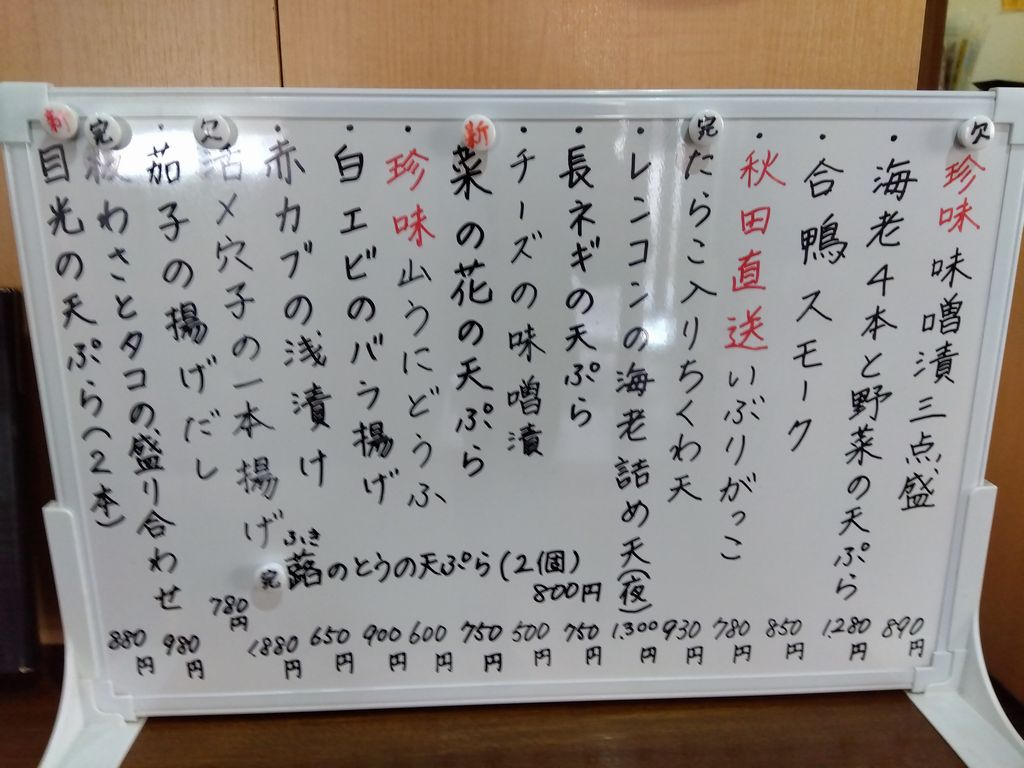 欠 珍味 味噌漬三点盛 890円
・海老4本と野菜の天ぷら 1,280円
・合鴨スモーク 850円
・秋田直送いぶりがっこ 780円
完 たらこ入りちくわ天 930円
・レンコンの海老詰め天(夜) 1,300円
・長ネギの天ぷら 750円
・チーズの味噌漬 500円
新 菜の花の天ぷら 750円
・珍味 山うにどうふ 600円
・白エビのバラ揚げ 900円
・赤カブの浅漬け 650円
欠 活〆穴子の一本揚げ 1,880円
・茄子の揚げだし 780円
完 板わさとタコの盛り合わせ 980円
新 目光の天ぷら(2本) 880円
ふき
完 蕗のとうの天ぷら(2個)
800円